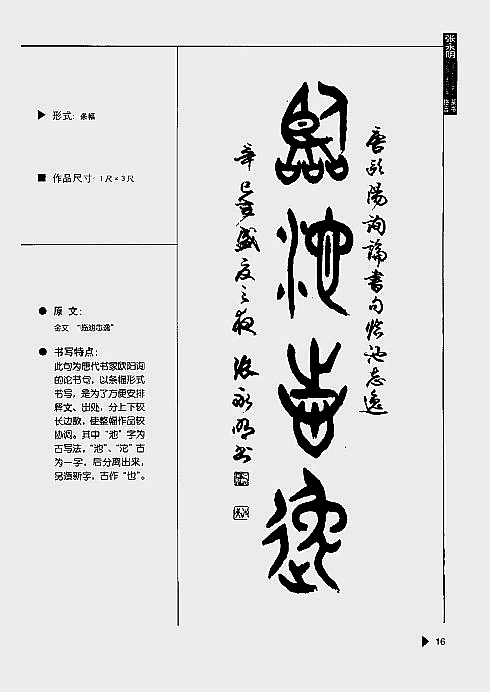 张永明
篆书
▶ 形式: 条幅
■ 作品尺寸: 1尺×3尺
● 原 文:
金文 “临池志逸”
● 书写特点:
此句为唐代书家欧阳询
的论书句，以条幅形式
书写，是为了方便安排
释文、出处，分上下较
长边款，使整幅作品较
协调。其中“池”字为
古写法，“池”、“沱”古
为一字，后分离出来，
另造新字，古作“也”。
唐欧阳询论书句临池志逸
臨池志逸
辛巳夏盛夏之夜 张永明书
▶ 16